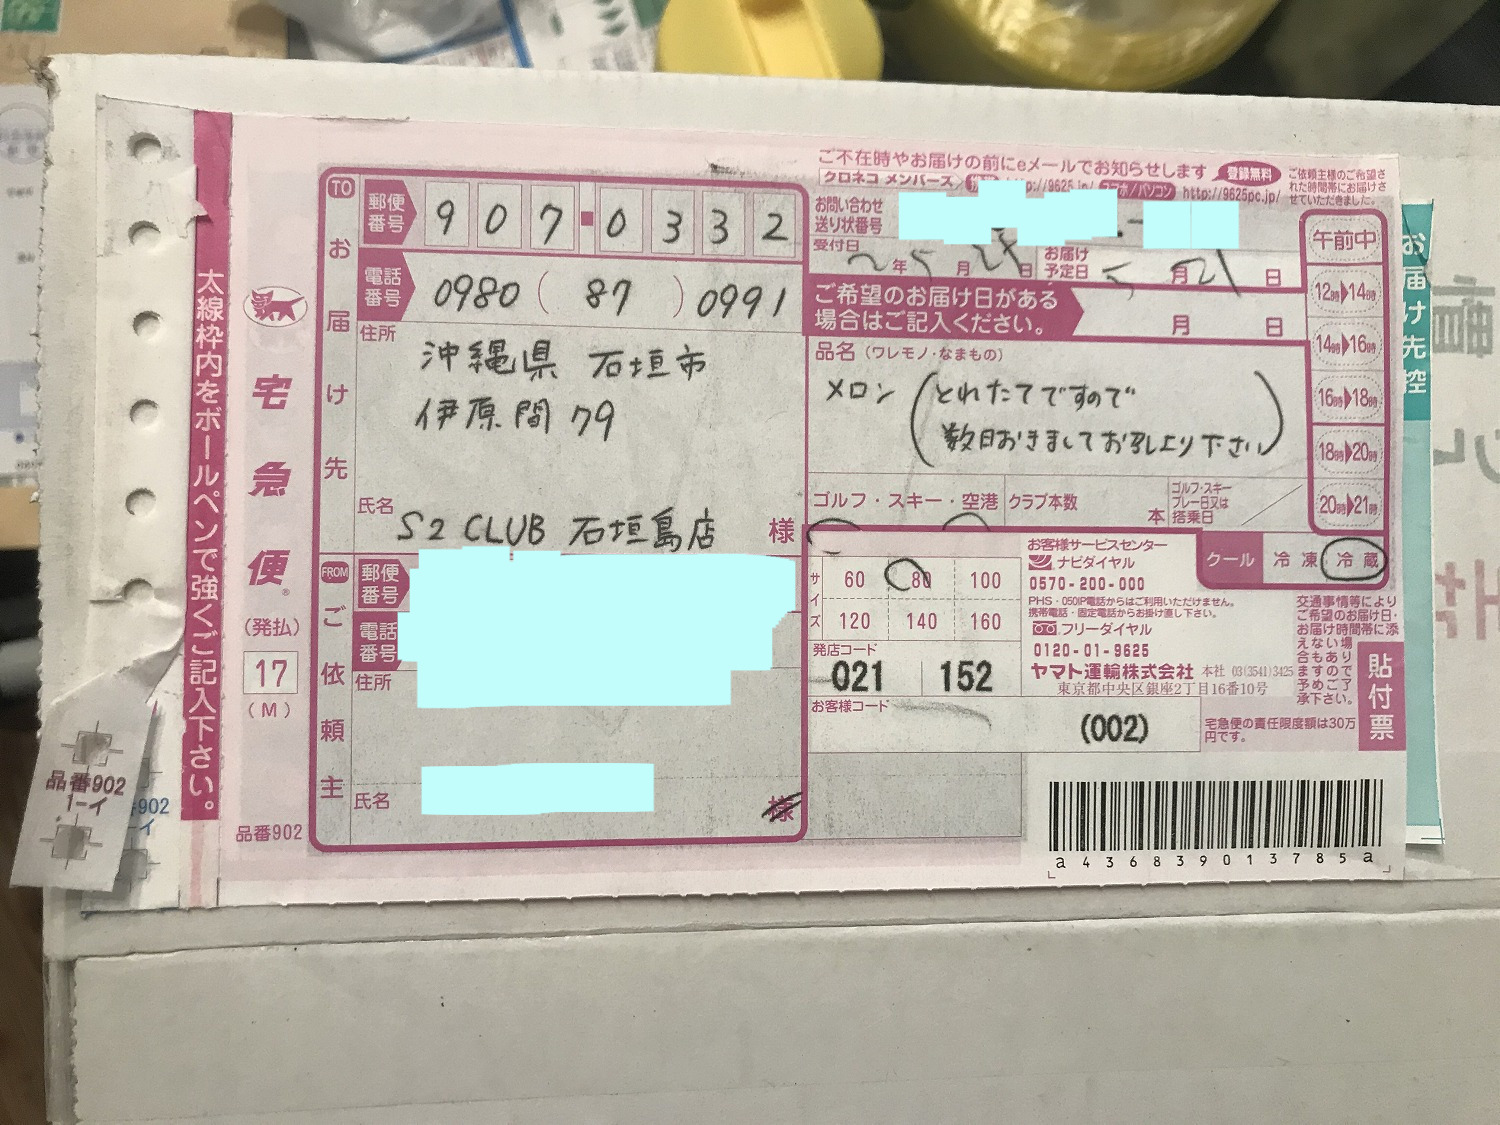 ご不在時やお届けの前にeメールでお知らせします 登録無料
クロネコ メンバーズ http://9625.jp/ パソコン http://9625pc.jp/
ご依頼主様のご希望さ
れた時間帯にお届けさ
せていただきました。
太線枠内をボールペンで強くご記入下さい。
宅急便
(発払)
17
(M)
品番902
品番902
1-イ
TO
お届け先
郵便番号 907-0332
電話番号 0980(87)0991
住所
沖縄県 石垣市
伊原間 79
氏名
S2 CLUB 石垣島店 様
FROM
ご依頼主
郵便番号
電話番号
住所
氏名
様
お問い合わせ
送り状番号
受付日 2年5月 日
お届け
予定日 5月 日
ご希望のお届け日がある
場合はご記入ください。
月 日
品名(ワレモノ・なまもの)
メロン(とれたてですので
数日おきましてお召し上り下さい)
ゴルフ・スキー・空港
クラブ本数 本
ゴルフ・スキー
プレー日又は
搭乗日
午前中
12時▶14時
14時▶16時
16時▶18時
18時▶20時
20時▶21時
クール 冷凍 冷蔵
サイズ
60 80 100
120 140 160
発店コード
021 152
お客様コード
(002)
お客様サービスセンター
ナビダイヤル
0570-200-000
PHS・050IP電話からはご利用いただけません。
携帯電話・固定電話からお掛け直し下さい。
フリーダイヤル
0120-01-9625
ヤマト運輸株式会社 本社 03(3541)3425
東京都中央区銀座2丁目16番10号
交通事情等により
ご希望のお届け日・
お届け時間帯に添
えない場
合もあり
ますので
予めご了
承下さい。
貼付票
宅急便の責任限度額は30万
円です。
a436839013785a
お届け先控